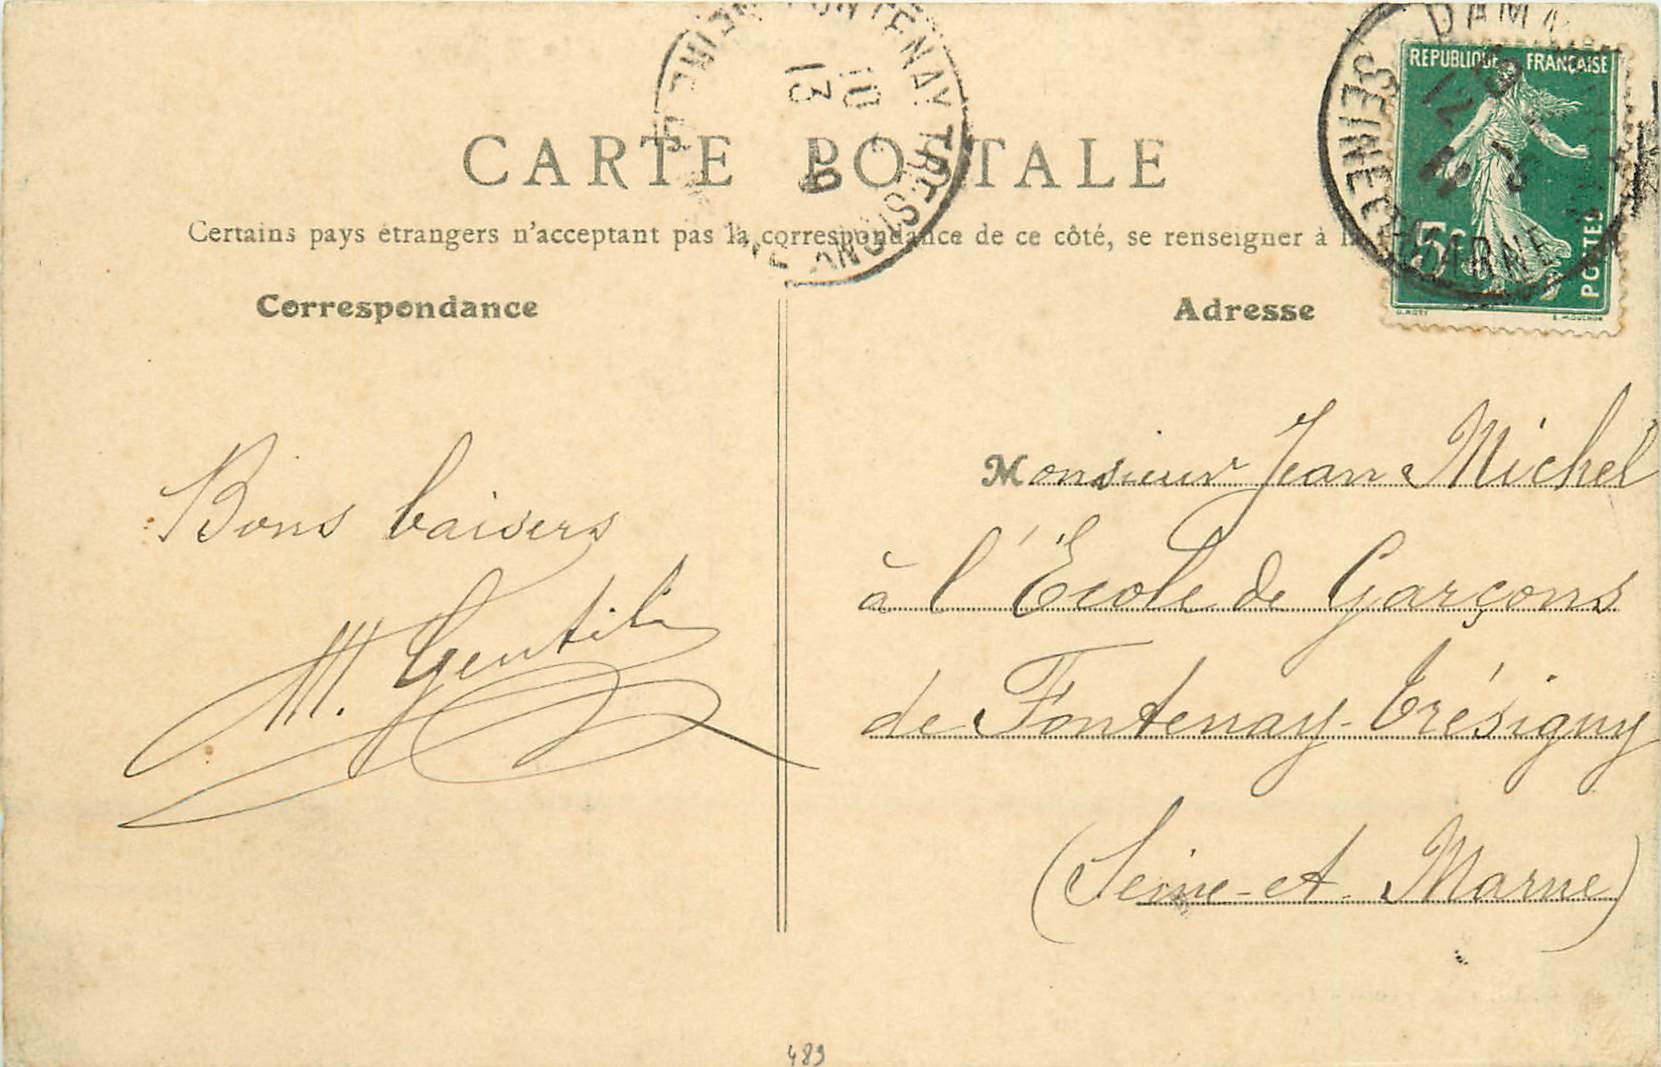 CARTE POSTALE
Certains pays étrangers n'acceptant pas la correspondance de ce côté, se renseigner à la
Correspondance
Adresse
REPUBLIQUE FRANÇAISE
5c
POSTES
O. ROTY
E. MOUCHON
FONTENAY TRESIGNY
SEINE ET MARNE
10
13
SEINE ET MARNE
Bons baisers
M. Gentil
Monsieur Jean Michel
à l'École de Garçons
de Fontenay-Trésigny
(Seine-et-Marne)
489